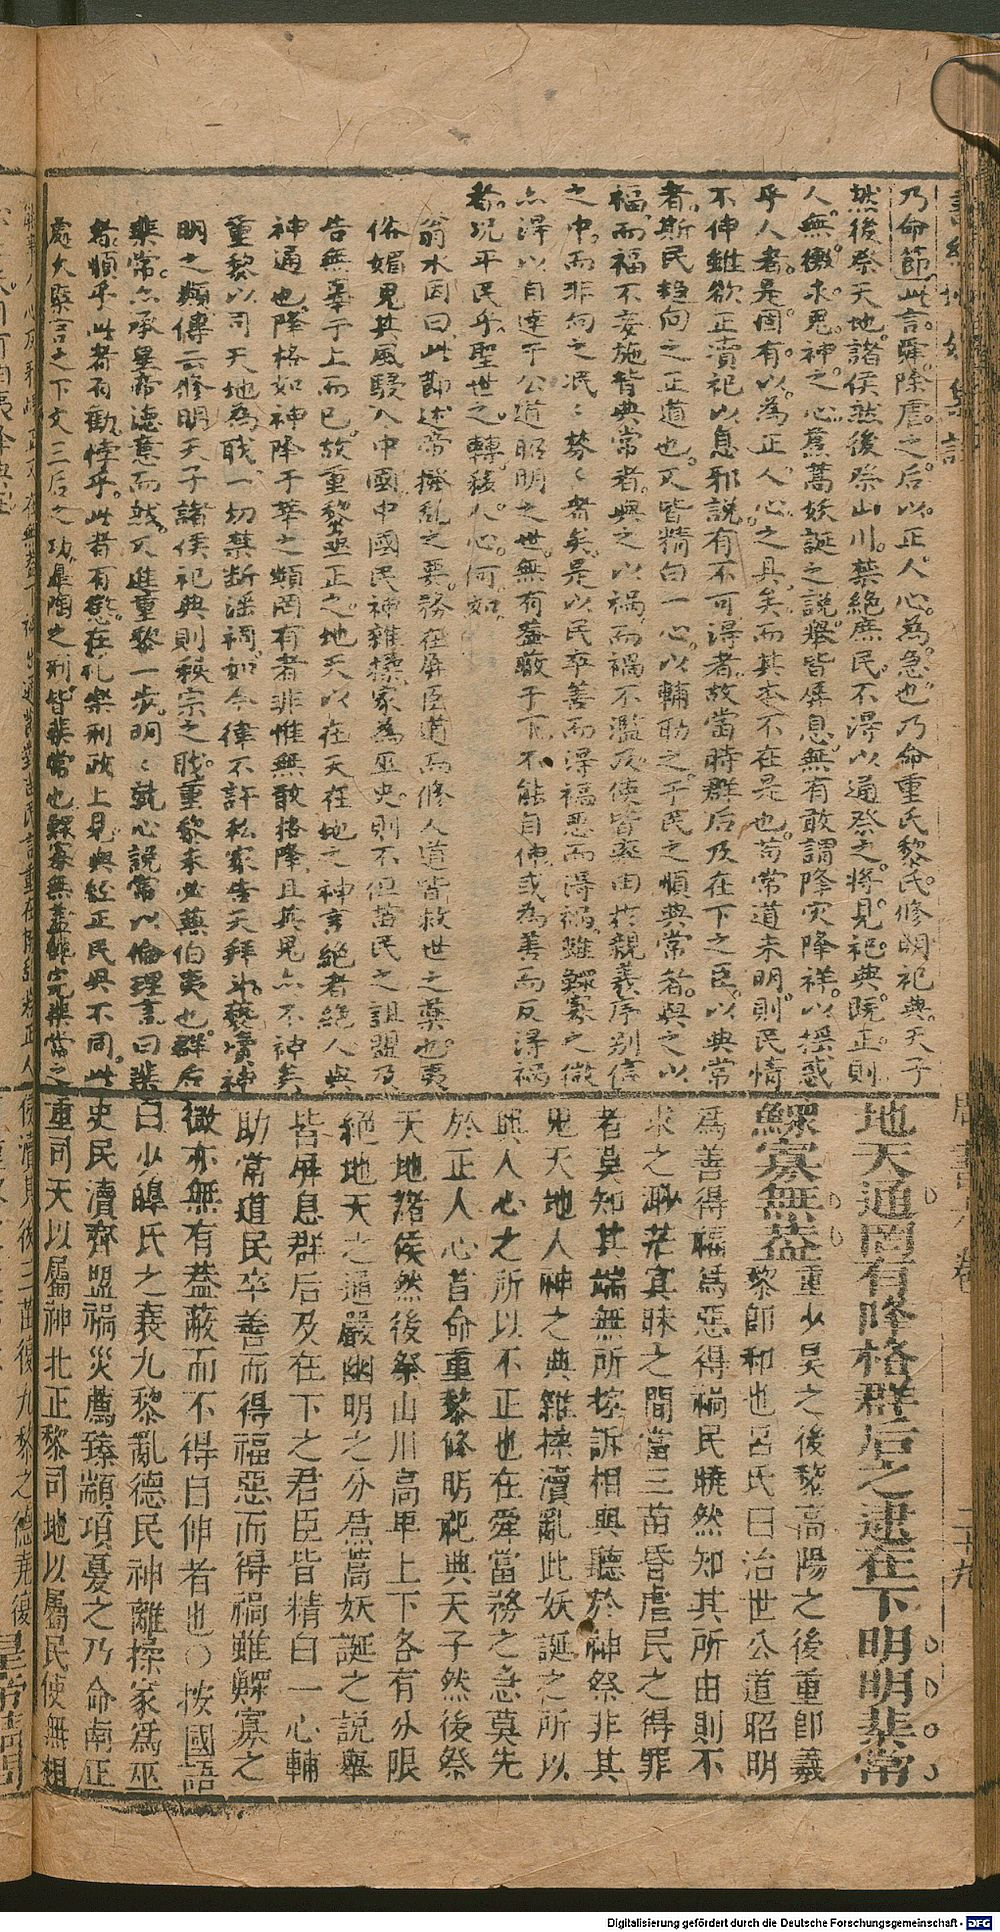 乃命節此言舜除虐之后以正人心為急也乃命重氏黎氏修明祀典天子
然後祭天地諸侯然後祭山川禁絕庶民不得以通祭之將見祀典既正則
人無徼求鬼神之心焄蒿妖誕之說舉皆屏息無有敢謂降灾降祥以搖惑
乎人者是固有以為正人心之具矣而其本不在是也苟常道未明則民情
不伸雖欲正瀆祀以息邪說有不可得者故當時群后及在下之臣以典常
者斯民趨向之正道也又皆精白一心以輔助之于民之順典常者與之以
福而福不妄施皆典常者與之以禍而禍不濫及使皆率由於親義序别信
之中而非向之泯泯棼棼者矣是以民卒善而得福惡而得禍雖鰥寡之微
亦得以自達于公道昭明之世無有蓋蔽于下不能自伸或為善而反得禍
者况平民乎聖世之轉移人心何如
翁水因曰此節述帝撥亂之要務在屏臣道而修人道皆救世之藥也夷
俗媚鬼其風駸入中國中國民神雜揉家為巫史則不但苗民之詛盟及
告無辜于上而已故重黎亟正之地天以在天在地之神言絕者絕人與
神通也降格如神降于莘之類罔有者非惟無敢格降且其鬼亦不神矣
重黎以司天地為職一切禁断淫祠如今律不許私家告天拜斗褻瀆神
明之類傳云修明天子諸侯祀典則秩宗之職重黎未必兼伯夷也群后
棐常亦承皇帝德意而然又進重黎一步明明就心說常以倫理言曰棐
者順乎此者有勸悖乎此者有懲在礼樂刑政上見與紅正民與不同此
處欠顯言之下文三后之功臯陶之刑皆棐常也鰥寡無蓋
地天通罔有降格群后之逮在下明明棐常
鰥寡無蓋重少昊之後黎高陽之後重即羲
黎即和也呂氏曰治世公道昭明
為善得福為惡得禍民曉然知其所由則不
求之渺茫冥昧之間當三苗昏虐民之得罪
者莫知其端無所控訴相與聽於神祭非其
鬼天地人神之典雜揉瀆亂此妖誕之所以
興人心之所以不正也在舜當務之急莫先
於正人心首命重黎修明祀典天子然後祭
天地諸侯然後祭山川高卑上下各有分限
絕地天之通嚴幽明之分焄蒿妖誕之說舉
皆屏息群后及在下之君臣皆精白一心輔
助常道民卒善而得福惡而得禍雖鰥寡之
微亦無有蓋蔽而不得自伸者也○按國語
曰少皥氏之衰九黎亂德民神雜揉家為巫
史民瀆齊盟禍災薦臻顓頊憂之乃命南正
重司天以屬神北正黎司地以屬民使無相
侵瀆其後三苗復九黎之德堯復
Digitalisierung gefördert durch die Deutsche Forschungsgemeinschaft - DFG